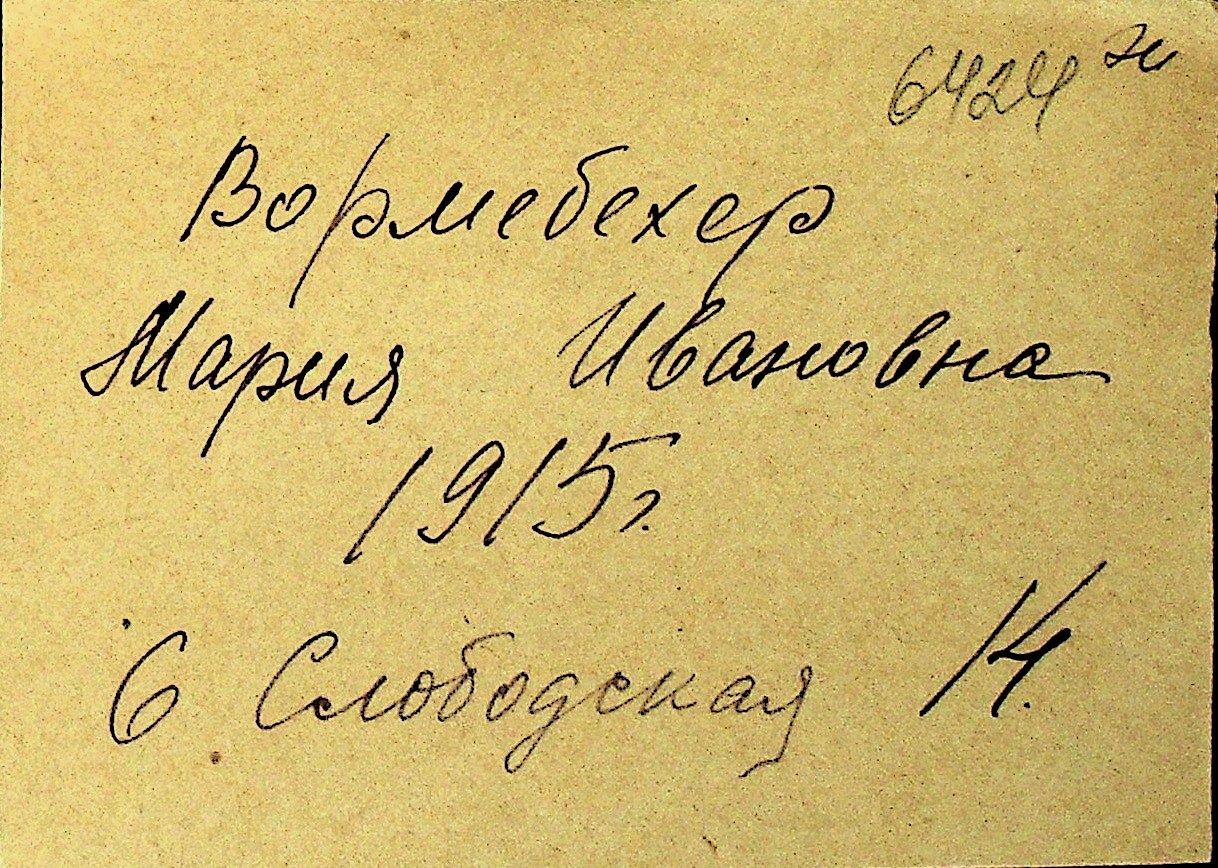 6424
Вормебехер
Мария Ивановна
1915 г.
6 Слободская 14.